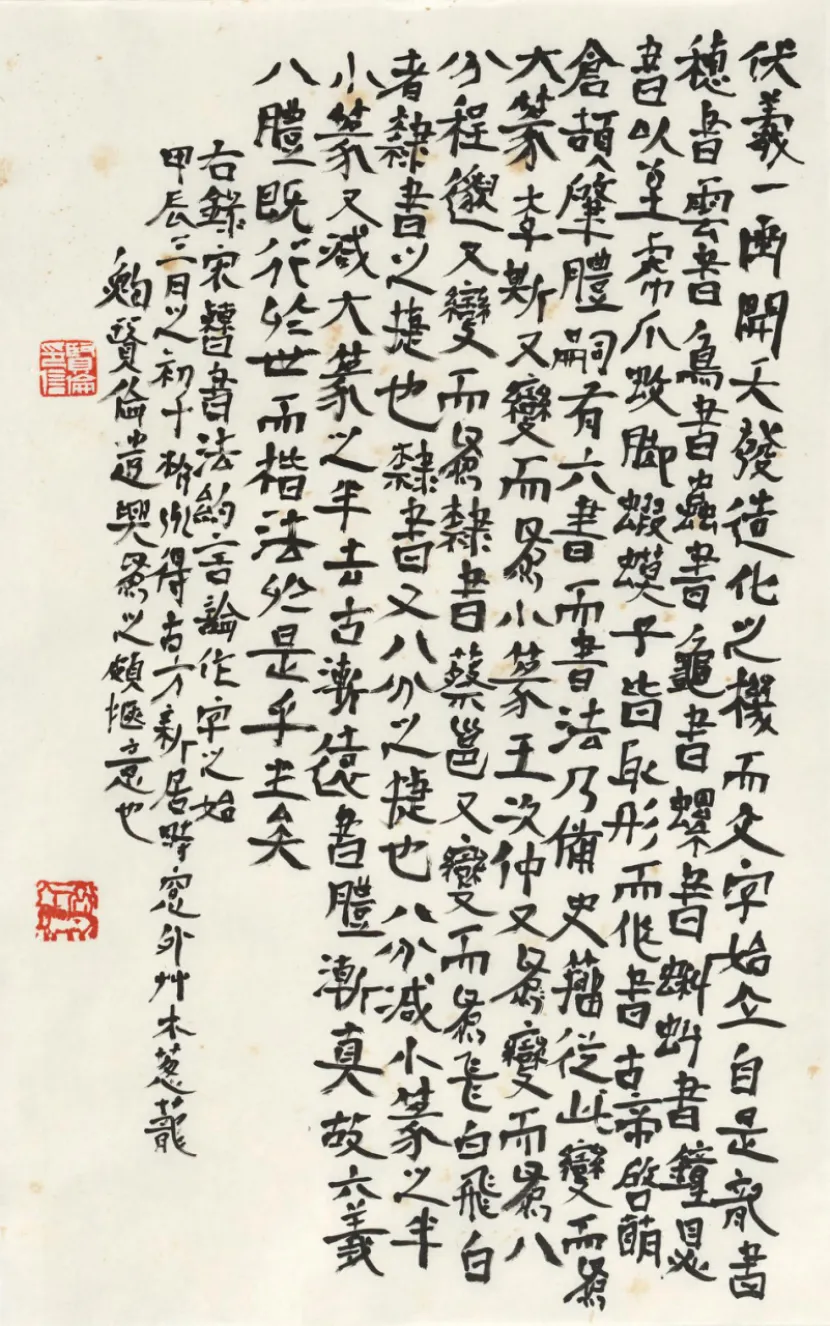 伏羲一畫開天發造化之機而文字始立自是龍書
穗書雲書鳥書蟲書龜書螺書蝌蚪書鐘鼎
書以至虎爪蚊脚蝦蟆子皆取形而作書古帝啓萌
倉頡肇體嗣有六書而書法乃備史籀從此變而為
大篆李斯又變而為小篆王次仲又為變而為八
分程邈又變而為隸書蔡邕又變而為飛白飛白
者隸書之捷也隸書又八分之捷也八分減小篆之半
小篆又減大篆之半去古漸遠書體漸真故六義
八體既行於世而楷法於是乎生矣
右錄宋曹書法約言論作字之始
甲辰三月之初十於得古方新居時窗外艸木葱蘢
賢倫遣興為之頗愜意也
賢倫印信